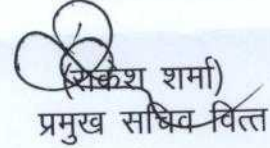 (राकेश शर्मा)
प्रमुख सचिव वित्त